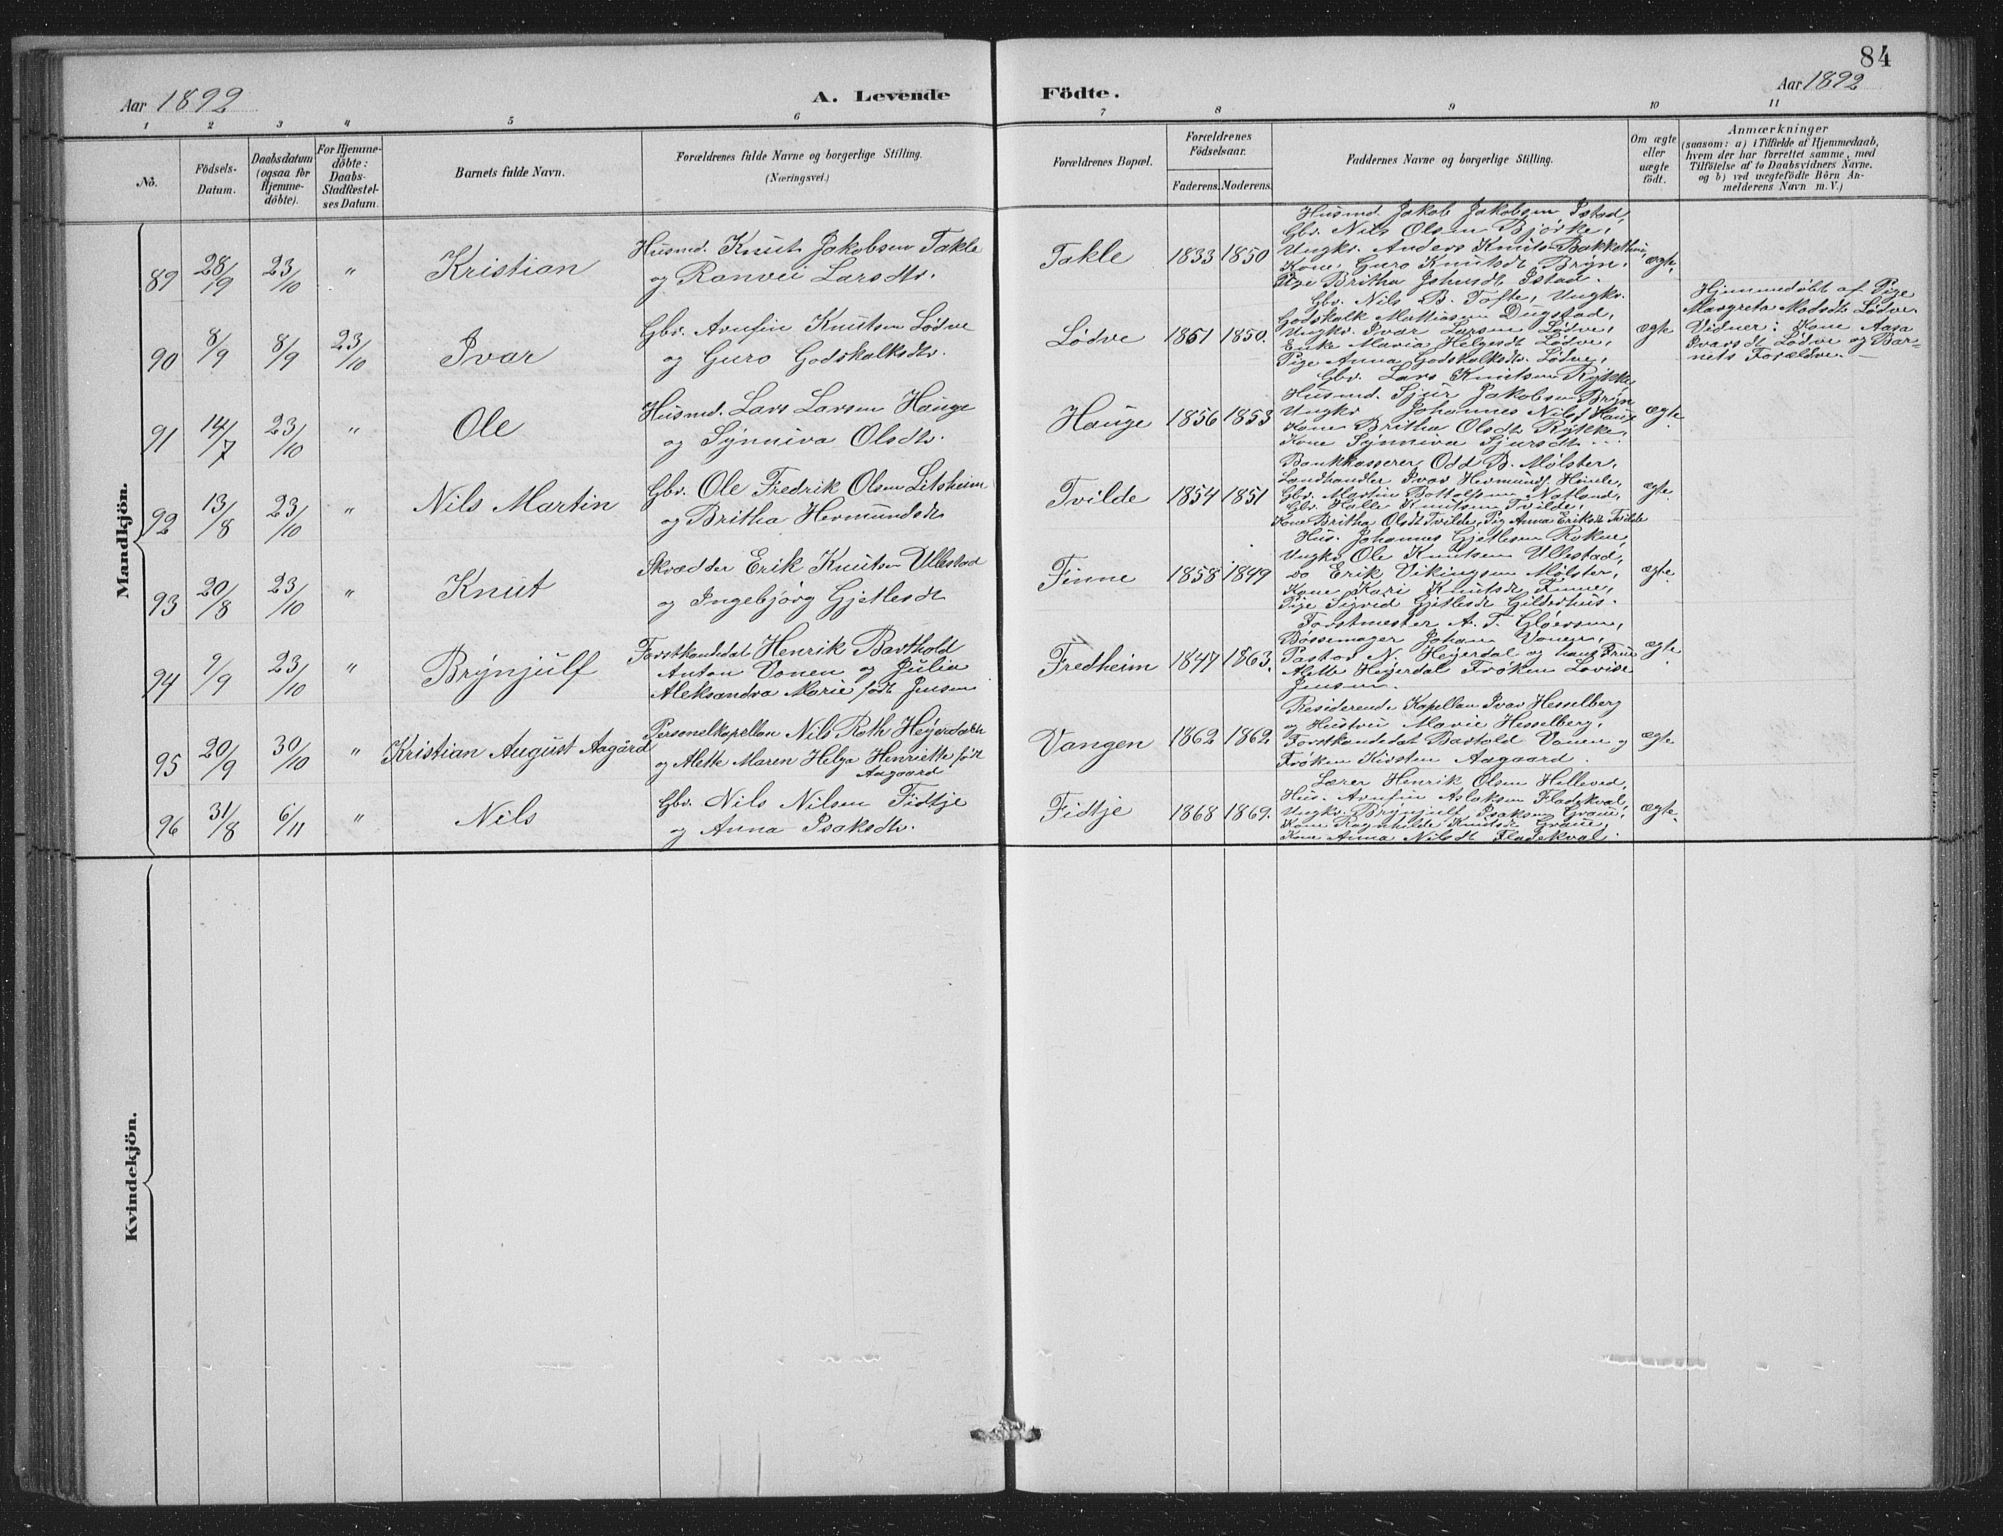 84
Aar 1892
A. Levende Födte.
Aar 1892
1 2 3 4 5 6 7 8 9 10 11
No.
Födsels-Datum.
Daabsdatum (ogsaa för Hjemme-döbte).
For Hjemme-döbte: Daabs-Stadfæstel-ses Datum.
Barnets fulde Navn.
Forældrenes fulde Navne og borgerlige Stilling.
(Næringsvei.)
Forældrenes Bopæl.
Forældrenes Födselsaar.
Faderens. Moderens.
Faddernes Navne og borgerlige Stilling.
Om ægte eller uægte födt.
Anmærkninger
(saasom: a) i Tilfælde af Hjemmedaab,
hvem der har forrettet samme, med
Tilföielse af to Daabsvidners Navne.
og b) ved uægtefödte Börn An-
melderens Navn m. V.)
Mandkjön.
89 28/9 23/10 " Kristian
Husmd. Knut Jakobsen Takle
og Ranvei Larsdtr.
Takle 1833 1850
Husmd. Jakob Jakobsen Istad,
Gbr. Nils Olsen Bjørke,
Ungkr. Anders Knuts.
Kone Guro Knutsdt Bryn.
Pige Britha Istad.
ægte.
90 8/9 8/9 23/10 Ivar
Gbr. Arnfin Knutsen Lødve
og Guro Godskalksdtr.
Lødve 1861 1850.
Gbr. Nils B. Tofte, Ungkr.
Godskalk Mattissen Dugstad,
Ungkr. Ivar Larsen Lødve,
Enke Maria Helgesdt Lødve,
Pige Anna Godskalksdtr. Lødve,
ægte
Hjemmedøbt af Pige
Margreta Madsdt Lødve.
Vidner: Kone Aasa
Ivarsdt Lødve og Bar-
nets Forældre.
91 14/7 23/10 " Ole
Husmd. Lars Larsen Hauge
og Synniva Olsdtr.
Hauge 1856 1853
Gbr. Lars Knutsen Rykke,
Husmd. Sjur Jakobsen Bryn
Ungkr Johannes Nils Hauge
Kone Britha Olsdt Rykke
Kone Synniva Sjursdt
ægte.
92 13/8 23/10 " Nils Martin
Gbr. Ole Fredrik Olsen Litsheim
og Britha Hermundsdt
Tvilde 1854 1851
Bankkasserer Odd B. Mølster,
Landhandler Ivar Hermunds. Himle,
Gbr. Martin Bottolfsen Natland,
Gbr. Halle Knutsen Tvilde,
Kone Britha Olsdt Tvilde, Pig Anna Eriksdt Tvilde
ægte.
93 20/8 23/10 " Knut
Skrædder Erik Knutsen Ullestad
og Ingebjørg Gjetlesdt
Finne 1858 1849
Hus. Johannes Gjetlesen Rokne,
Ungkr Ole Knutsen Ullestad,
do Erik Vikingsen Mølster,
Kone Kari Knutsdt Finne,
Pige Sigrid Gjetlesdt Gilderhus.
ægte
94 9/9 23/10 " Brynjulf
Forstkandidat Henrik Barthold
Anton Vonen og Julia
Aleksandra Marie født Jensen
Fredheim 1847 1863.
Forstmester A. T. Gløersen,
Bøssemager Johan Vonen,
Pastor N. Heyerdal og hans Frue
Alette Heyerdal Frøken Lovise
Jensen.
ægte
95 20/9 30/10 " Kristian August Aagård
Personelkapellan Nils Roth Heyerdahl
og Alette Maren Helga Henriette født
Aagaard
Vangen 1862 1862
Residerende Kapellan Ivar Hesselberg
og Hustru Marie Hesselberg,
Forstkandidat Bartold Vonen og
Frøken Kirsten Aagaard.
ægte
96 31/8 6/11 " Nils
Gbr. Nils Nilsen Fidtje
og Anna Isaksdtr.
Fidtje 1868 1869.
Lærer Henrik Olsen Helleved,
Hus. Arnfin Aslaksen Fladekval,
Ungkr Brynjulf Isaksen Graue,
Kone Ragnhilde Knutsdt Graue,
Kone Anna Nilsdt Fladekval.
ægte.
Kvindekjön.